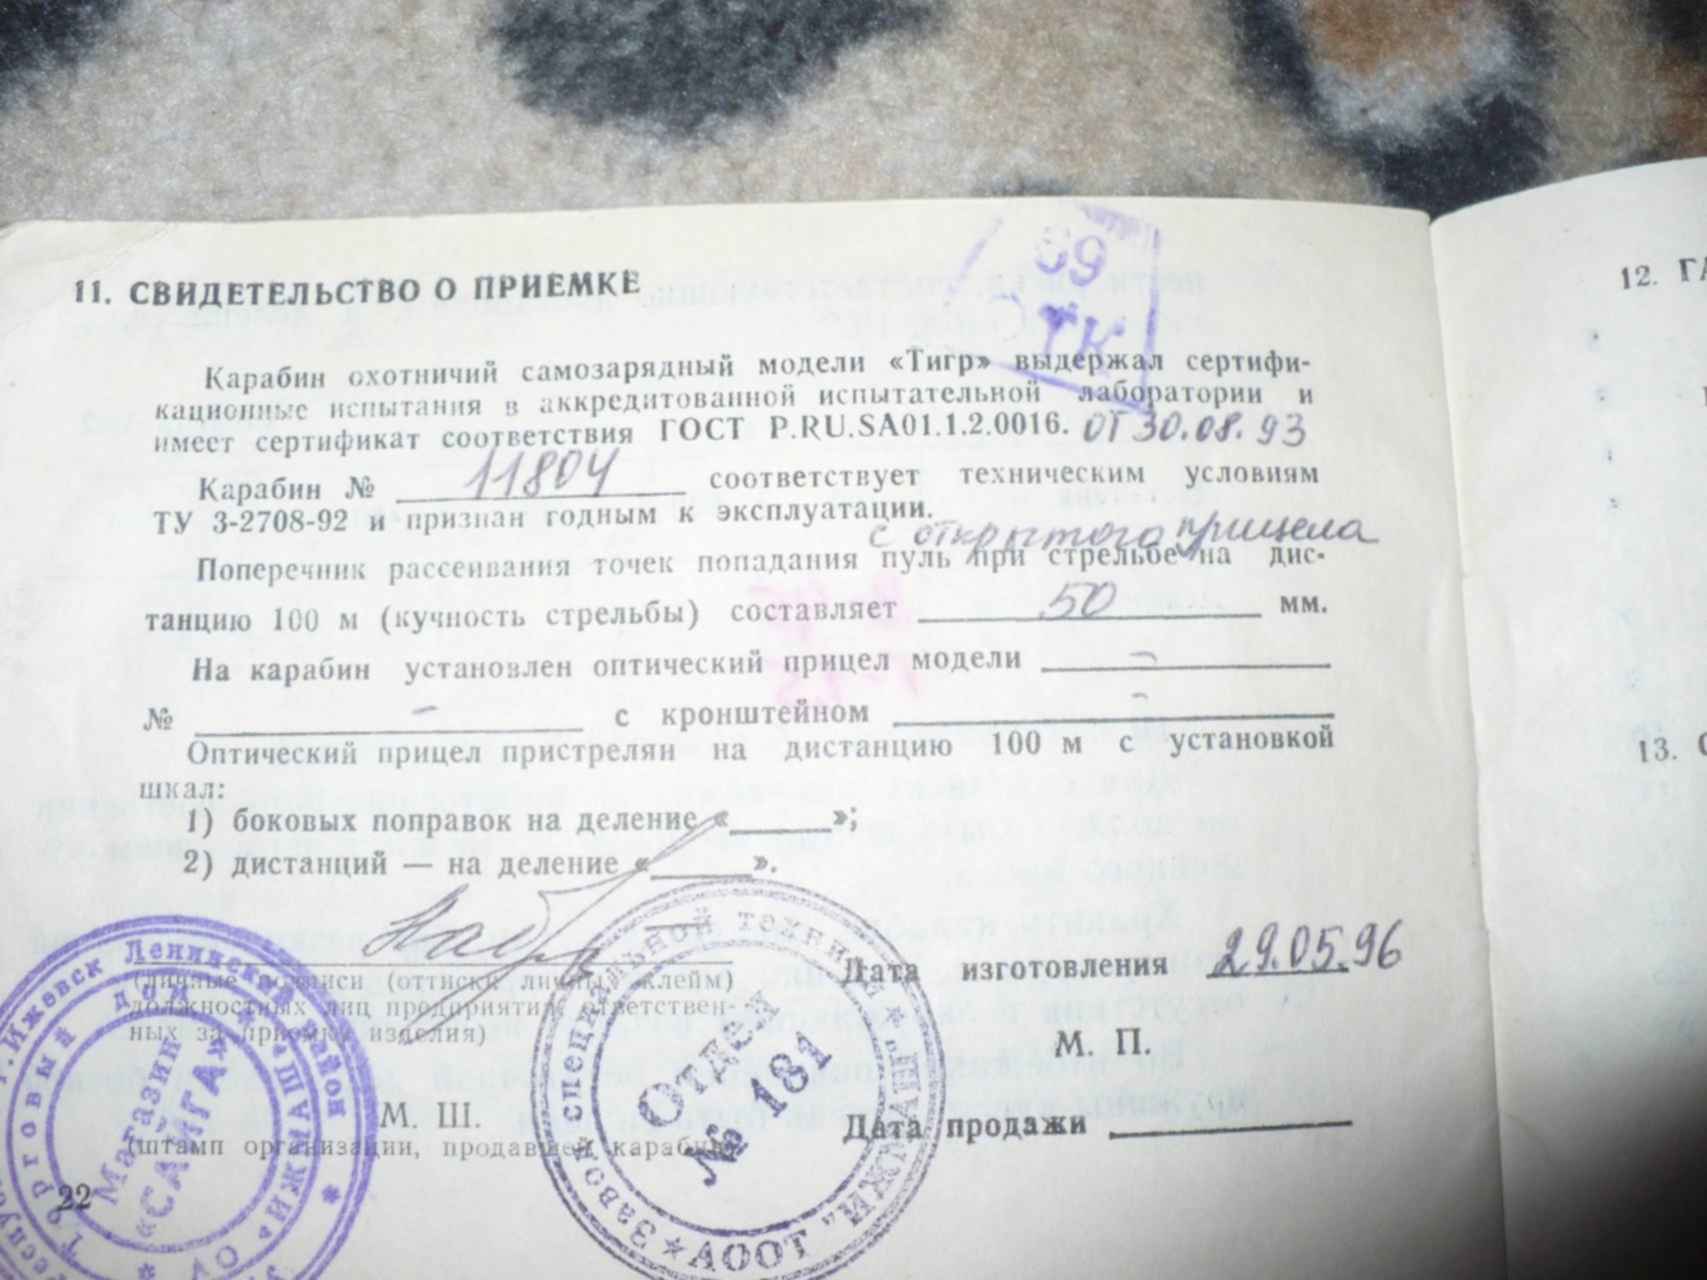 69
ТК
11. СВИДЕТЕЛЬСТВО О ПРИЕМКЕ
Карабин охотничий самозарядный модели «Тигр» выдержал сертифи-
кационные испытания в аккредитованной испытательной лаборатории и
имеет сертификат соответствия ГОСТ Р.RU.SA01.1.2.0016. от 30.08.93
Карабин № 11804 соответствует техническим условиям
ТУ 3-2708-92 и признан годным к эксплуатации.
с открытого прицела
Поперечник рассеивания точек попадания пуль при стрельбе на дис-
танцию 100 м (кучность стрельбы) составляет 50 мм.
На карабин установлен оптический прицел модели –
№ – с кронштейном –
Оптический прицел пристрелян на дистанцию 100 м с установкой
шкал:
1) боковых поправок на деление «»;
2) дистанций — на деление «».
(личные подписи (оттиски личных клейм)
должностных лиц предприятия, ответствен-
ных за приемку изделия)
Дата изготовления 29.05.96
М. П.
М. Ш.
(штамп организации, продавшей карабин)
Дата продажи
г. Ижевск Ленинский район
Торговый дом
«ИЖМАШ»
Магазин
«САЙГА»
АООТ „ИЖМАШ“
Завод специальной техники
Отдел
№ 181
22
12. ГА
13.